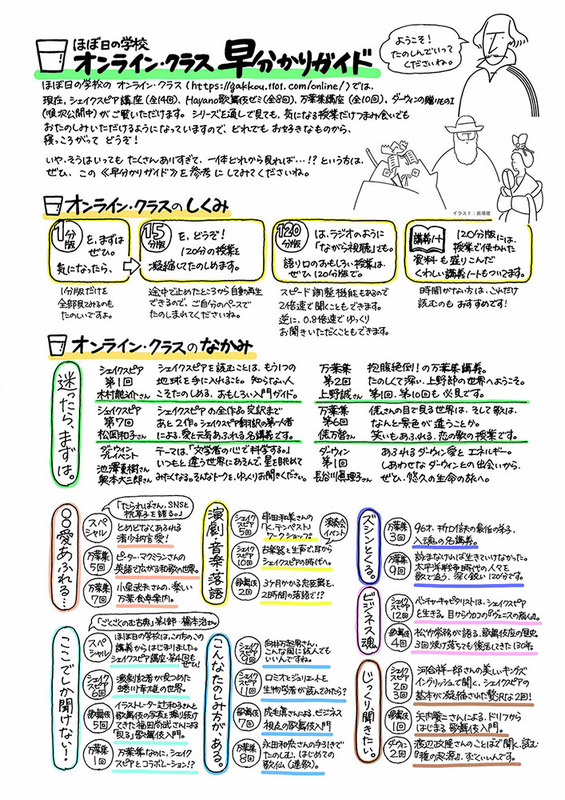 ほぼ日の学校
オンライン・クラス 早分かりガイド
ようこそ!
たのしんでいって
くださいね。
ほぼ日の学校の オンライン・クラス (https://gakkou.1101.com/online/)では、
現在、シェイクスピア講座(全14回)、Hayano歌舞伎ゼミ(全8回)、万葉集講座(全10回)、ダーウィンの贈りものI
(順次公開中)が ご覧いただけます。シリーズを通して見ても、気になる授業だけつまみ食いでも
おたのしみいただけるようになっていますので、どれでも お好きなものから、
寝っころがって どうぞ!
いや、そうはいっても たくさんありすぎて、一体どれから見れば…!? という方は、
ぜひ、この《早分かりガイド》を参考にしてみてくださいね。
イラスト:長場雄
オンライン・クラスのしくみ
1分版
を、まずは
ぜひ。
気になったら、
15分版
を、どうぞ!
120分の授業を
凝縮してたのしめます。
120分版
は、ラジオのように
「ながら視聴」でも。
語り口のおもしろい授業は、
ぜひ120分版で。
講義ノート
120分版には、
授業で使われた
資料も盛りこんだ
くわしい講義ノートもついてます。
1分版だけを
全部見てみるのも
たのしいですよ。
途中で止めたところから自動再生
できるので、ご自分のペースで
たのしまれてくださいね。
スピード調整機能もあるので
2倍速で聞くこともできます。
逆に、0.8倍速でゆっくり
お聞きいただくこともできます。
時間がない方は、これだけ
読むのも おすすめです!
オンライン・クラスのなかみ
迷ったら、まずは。
シェイクスピア
第1回
木村龍之介さん
シェイクスピアを読むことは、もう1つの
地球を手に入れること。知らない人
こそたのしめる、おもしろい入門ガイド。
万葉集
第2回
上野誠さん
抱腹絶倒!の万葉集講義。
たのしくて深い、上野節の世界へようこそ。
第1回、第10回も必見です。
シェイクスピア
第7回
松岡和子さん
シェイクスピアの全作品完訳まで
あと2作。シェイクスピア翻訳の第一人者
による、愛と元気あふれる名講義です。
万葉集
第6回
俵万智さん
俵さんの目で見る世界は、そして歌は、
なんと景色が違うことか。
笑いもあふれる、恋の歌の授業です。
ダーウィン
プレイベント
池澤夏樹さん
奥本大三郎さん
テーマは、「文学者の心で科学する」。
いつもと違う世界にあるんで、星を眺めて
みたくなる。そんなトークを、ゆっくりお聞きください。
ダーウィン
第1回
長谷川眞理子さん
あふれるダーウィン愛とエネルギー。
しあわせなダーウィンとの出会いから、
ぜひ、悠久の生命の旅へ。
○○愛あふれる…
「たらればさん、SNSと
枕草子を語る。」
スペシャル
とめどなくあふれる
清少納言愛!
万葉集
5回
ピーター・マクミランさんの
英語でたどる和歌の世界。
万葉集
7回
小泉武夫さんの、楽しい
万葉食卓案内。
演劇 音楽・落語
シェイクスピア
5回
串田和美さんの
「K.テンペスト」
ワークショップ。
演奏会
イベント
シェイクスピア
10回
お楽器と生声で、耳から
シェイクスピアの時代へ。
歌舞伎
2回
3ヶ月かかる忠臣蔵を、
2時間の落語で!?
ズシンとくる。
万葉集
3回
96才、
入魂の名講義。
万葉集
9回
詠まなければ生きていけなかった。
太平洋戦争時代の人々を
歌で追う、深く鋭い120分です。
ビジネス魂
シェイクスピア
12回
ベンチャーキャピタリストは、シェイクスピア
を生きる。目からウロコの『ヴェニスの商人』。
歌舞伎
4回
松竹常務が語る、歌舞伎座の歴史
3回焼け落ちても復活してきた130年。
ここでしか聞けない!
「ごくごくのむ古典」第1部・橋本治さん
スペシャル
ほぼ日の学校は、この方のこの
講義からはじまりました。
シェイクスピア講座・第4回も
ぜひ!
シェイクスピア
6回
演劇記者が見た
蜷川幸雄の世界。
歌舞伎
5回
イラストレーター辻和子さんと
歌舞伎の写真を撮り続け
てきた福田尚武さんによる
「見る」歌舞伎入門。
万葉集
1回
万葉集なのに、シェイク
スピアとコラボレーション!?
こんなたのしみ方がある。
シェイクスピア
9回
向井万起男さん、
こんな風に読んでも
いいんですね。
シェイクスピア
11回
ロミオとジュリエットを
生物学者が読んでみたら?
歌舞伎
7回
成毛眞さんによる、ビジネス
視点の歌舞伎入門
万葉集
8回
永田和宏さんの手引きで
たのしむ、はじめての
歌仙(連歌)。
じっくり聞きたい。
シェイクスピア
2回
3回
河合祥一郎さんの美しいキングズ
イングリッシュで聞く、シェイクスピアの
基本が凝縮された贅沢な2回!
歌舞伎
1回
矢内賢二さんによる、ドリフから
はじまる 歌舞伎入門。
ダーウィン
2回
渡辺政隆さんのことばで聞く、読む
『種の起源』。すごいんです。